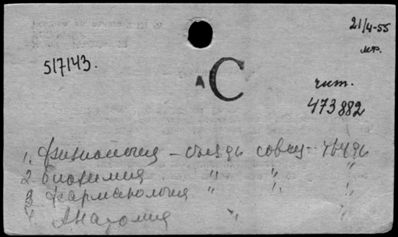 21/4-55
517143.
А С
чит.
473882
1. Физиология – съезды совещ. – труды
2. биохимия " " "
3. фармакология " " "
4. Анатомия " "